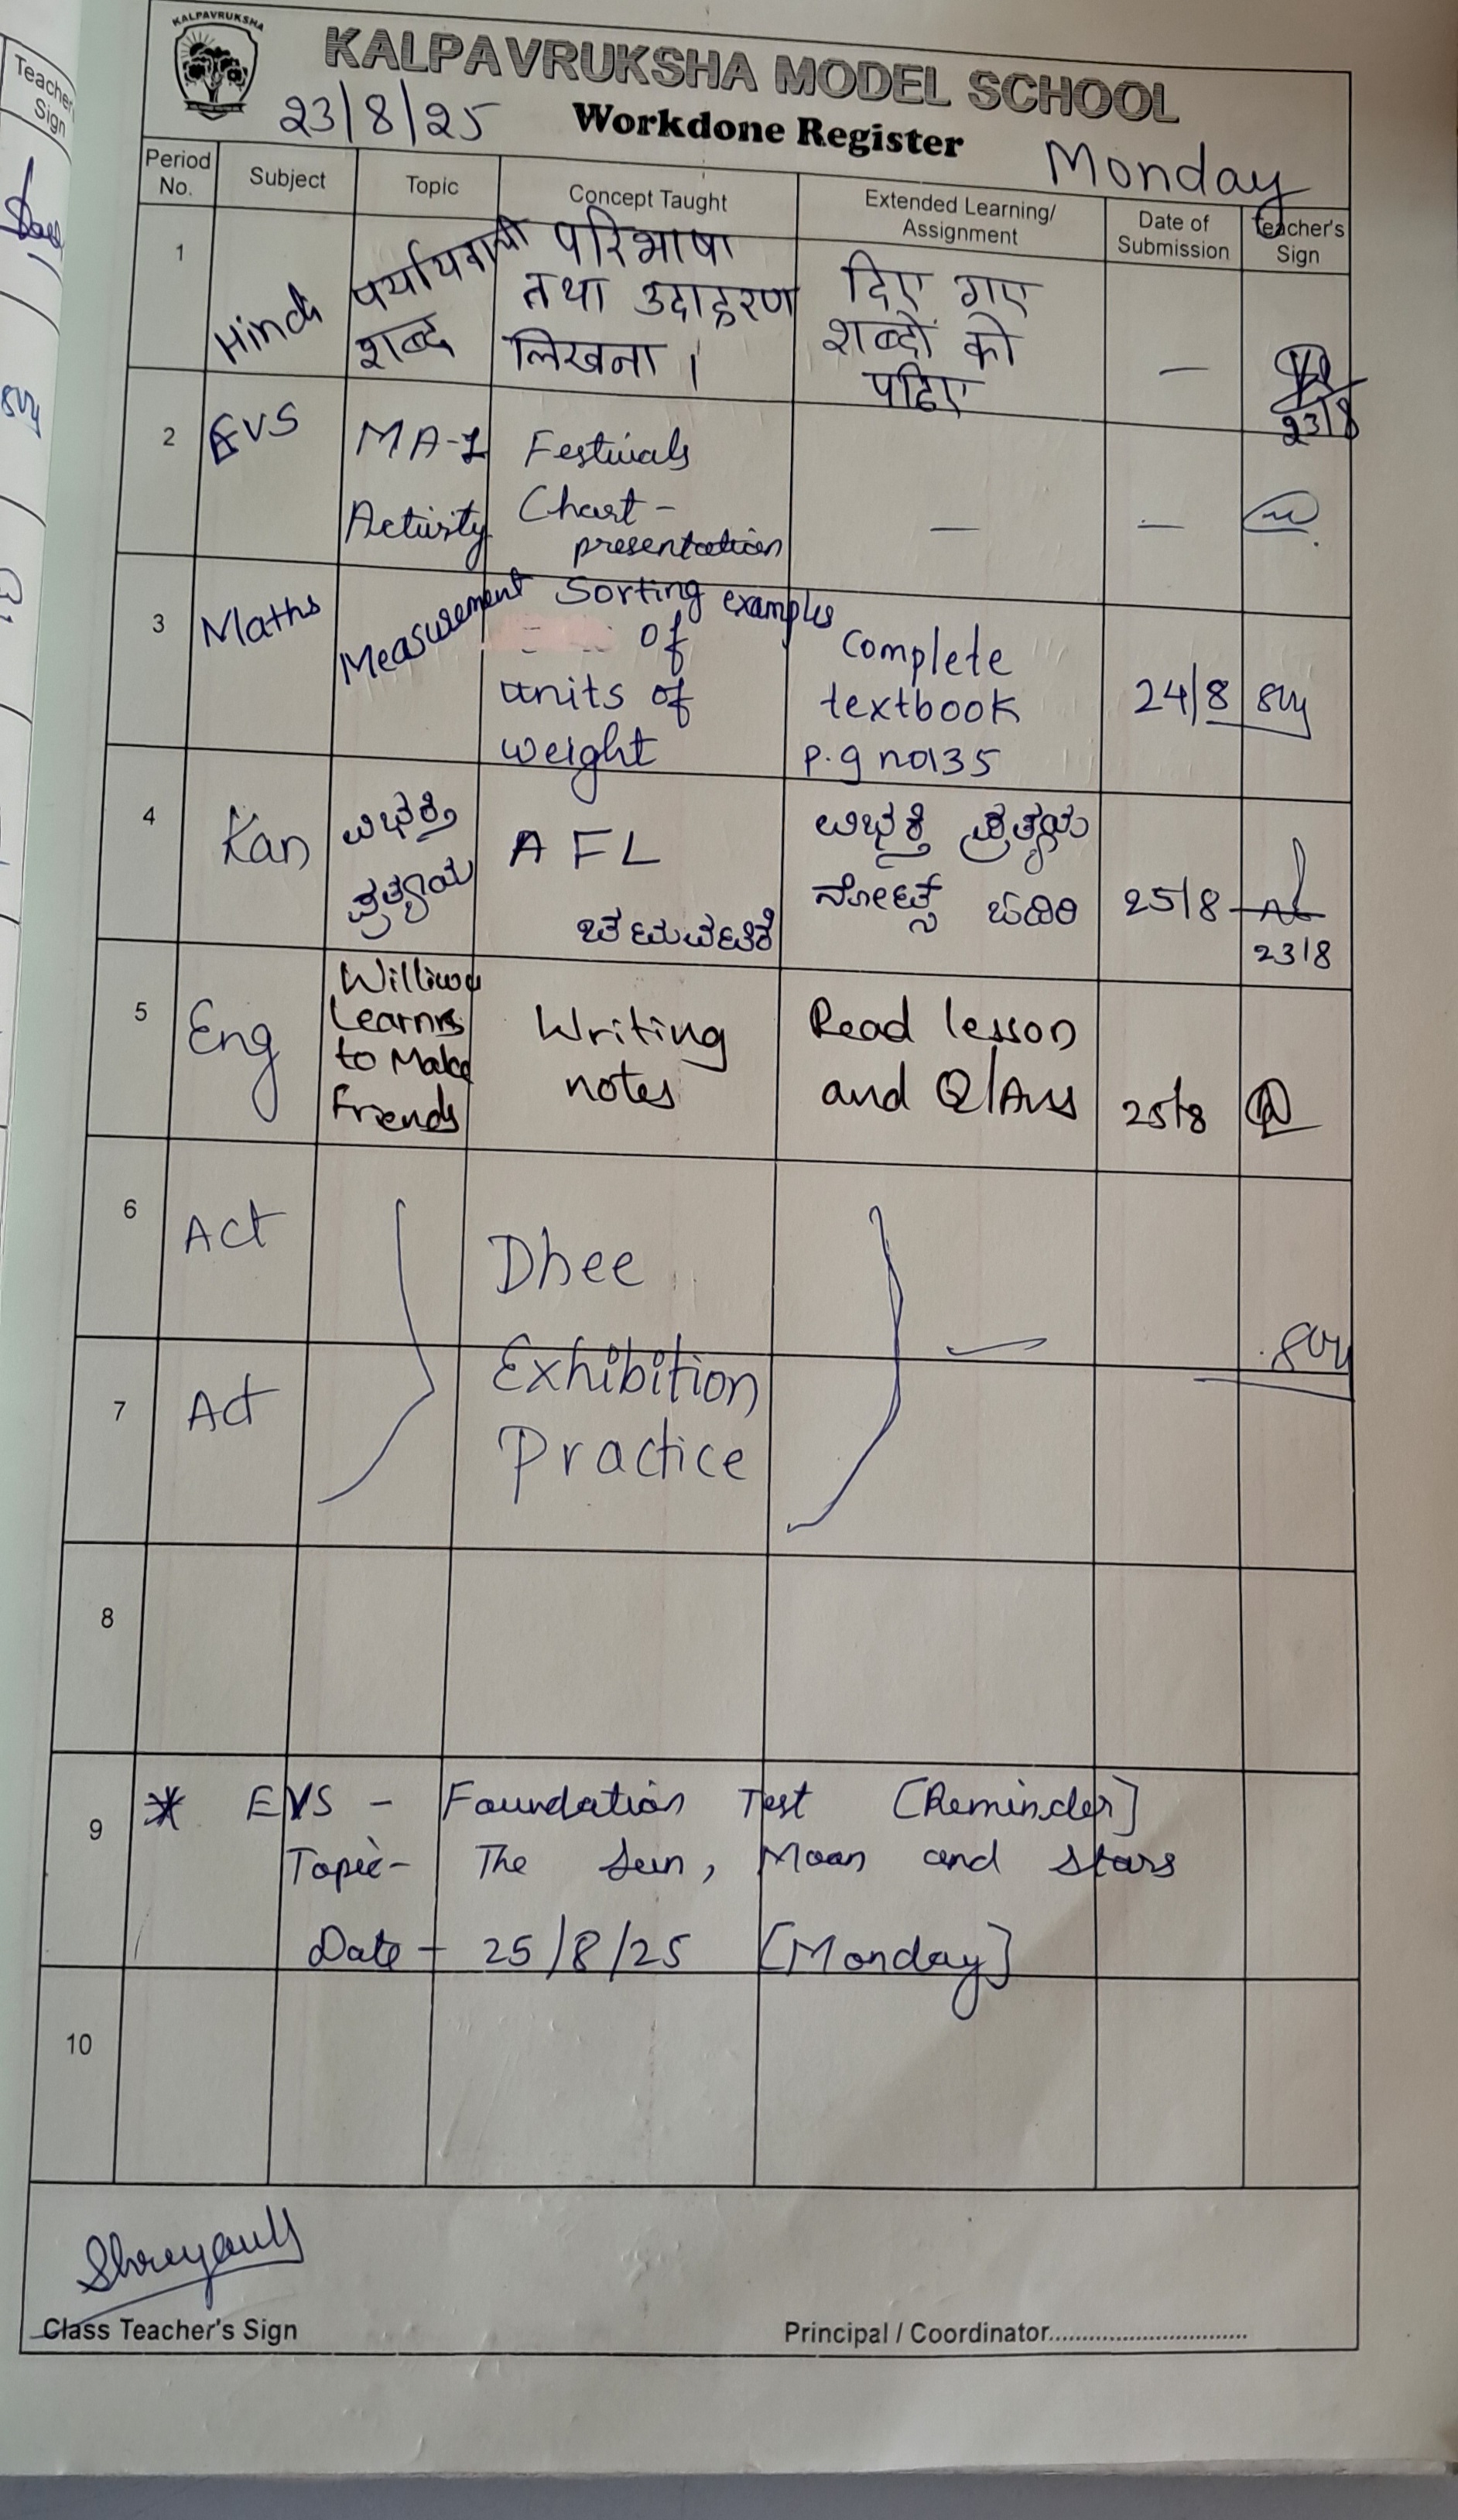 Teacher
Sign
KALPAVRUKSHA
KALPAVRUKSHA MODEL SCHOOL
23/8/25 Workdone Register Monday
Period No. Subject Topic Concept Taught Extended Learning/ Assignment Date of Submission Teacher's Sign
1 Hindi
पर्यायवाची
शब्द
परिभाषा
तथा उदाहरण
लिखना ।
दिए गए
शब्दों को
पढिए
—
23/8
2 EVS
MA-1
Activity
Festivals
Chart -
presentation
—
—
3 Maths
Measurement
Sorting examples
of
units of
weight
Complete
textbook
p.g no135
24/8
4 Kan
ವಿಭಕ್ತಿ
ಪ್ರತ್ಯಯ
AFL
ವಿಭಕ್ತಿ ಪ್ರತ್ಯಯ
ನೋಟ್ಸ್
25/8
23/8
5 Eng
Learns
to Make
Friends
Writing
notes
Read lesson
and Q/Ans
25/8
6 Act
7 Act
Dhee
Exhibition
Practice
—
8
9
* EVS - Foundation Test [Reminder]
Topic- The Sun, Moon and Stars
Date - 25/8/25 [Monday]
10
Class Teacher's Sign
Principal / Coordinator..............................